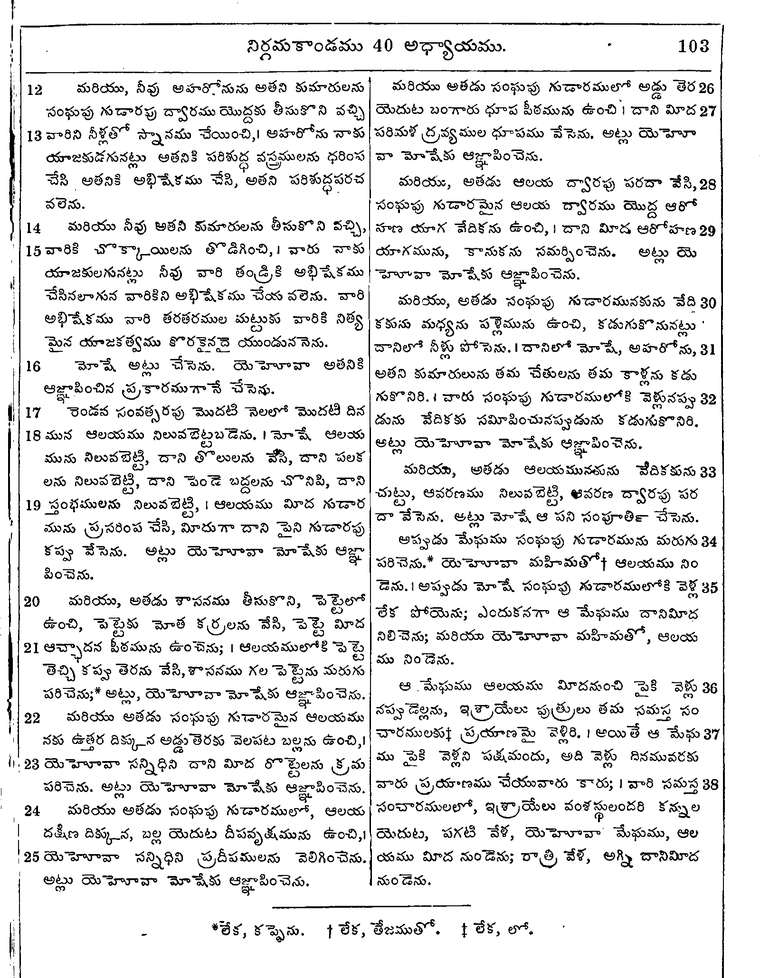 నిర్గమకాండము 40 అధ్యాయము. 103
12 మరియు, నీవు అహరోనును అతని కుమారులను
సంఘపు గుడారపు ద్వారము యొద్దకు తీసుకొని వచ్చి
13 వారిని నీళ్లతో స్నానము చేయించి,। అహరోను నాకు
యాజకుడగునట్లు అతనికి పరిశుద్ధ వస్త్రములను ధరింప
చేసి అతనికి అభిషేకము చేసి, అతని పరిశుద్ధపరచ
వలెను.
14 మరియు నీవు అతని కుమారులను తీసుకొని వచ్చి,
15 వారికి చొక్కాయిలను తొడిగించి,। వారు నాకు
యాజకులగునట్లు నీవు వారి తండ్రికి అభిషేకము
చేసినలాగున వారికిని అభిషేకము చేయ వలెను. వారి
అభిషేకము వారి తరతరముల మట్టుకు వారికి నిత్య
మైన యాజకత్వము కొరకైనదై యుండుననెను.
16 మోషే అట్లు చేసెను. యెహోవా అతనికి
ఆజ్ఞాపించిన ప్రకారముగానే చేసెను.
17 రెండవ సంవత్సరపు మొదటి నెలలో మొదటి దిన
18 మున ఆలయము నిలువబెట్టబడెను. । మోషే ఆలయ
మును నిలువబెట్టి, దాని తొలులను వేసి, దాని పలక
లను నిలువబెట్టి, దాని పెండె బద్దలను చొనిపి, దాని
19 స్తంభములను నిలువబెట్టి, । ఆలయము మీద గుడార
మును ప్రసరింప చేసి, మీదుగా దాని పైని గుడారపు
కప్పు వేసెను. అట్లు యెహోవా మోషేకు ఆజ్ఞా
పించెను.
20 మరియు, అతడు శాసనము తీసుకొని, పెట్టెలో
ఉంచి, పెట్టెకు మోత కర్రలను వేసి, పెట్టె మీద
21 ఆచ్ఛాదన పీఠమును ఉంచెను; । ఆలయములోకి పెట్టె
తెచ్చి కప్పు తెరను వేసి, శాసనము గల పెట్టెను మరుగు
పరిచెను;* అట్లు, యెహోవా మోషేకు ఆజ్ఞాపించెను.
22 మరియు అతడు సంఘపు గుడారమైన ఆలయము
నకు ఉత్తర దిక్కున అడ్డుతెరకు వెలపట బల్లను ఉంచి,।
23 యెహోవా సన్నిధిని దాని మీద రొట్టెలను క్రమ
పరిచెను. అట్లు యెహోవా మోషేకు ఆజ్ఞాపించెను.
24 మరియు అతడు సంఘపు గుడారములో, ఆలయ
దక్షిణ దిక్కున, బల్ల యెదుట దీపవృక్షమును ఉంచి,।
25 యెహోవా సన్నిధిని ప్రదీపములను వెలిగించెను.
అట్లు యెహోవా మోషేకు ఆజ్ఞాపించెను.
మరియు అతడు సంఘపు గుడారములో అడ్డు తెర 26
యెదుట బంగారు ధూప పీఠమును ఉంచి। దాని మీద 27
పరిమళ ద్రవ్యముల ధూపము వేసెను. అట్లు యెహో
వా మోషేకు ఆజ్ఞాపించెను.
మరియు, అతడు ఆలయ ద్వారపు పరదా వేసి, 28
సంఘపు గుడారమైన ఆలయ ద్వారము యొద్ద ఆరో
హణ యాగ వేదికను ఉంచి, । దాని మీద ఆరోహణ 29
యాగమును, కానుకను సమర్పించెను. అట్లు యె
హోవా మోషేకు ఆజ్ఞాపించెను.
మరియు, అతడు సంఘపు గుడారమునకును వేది 30
కకును మధ్యను పళ్లెమును ఉంచి, కడుగుకొనునట్లు
దానిలో నీళ్లు పోసెను. । దానిలో మోషే, అహరోను, 31
అతని కుమారులును తమ చేతులను తమ కాళ్లను కడు
గుకొనిరి. । వారు సంఘపు గుడారములోకి వెళ్లునప్పు 32
డును వేదికకు సమీపించునప్పుడును కడుగుకొనిరి.
అట్లు యెహోవా మోషేకు ఆజ్ఞాపించెను.
మరియు, అతడు ఆలయమునకును వేదికకును 33
చుట్టు, ఆవరణము నిలువబెట్టి, ఆవరణ ద్వారపు పర
దా వేసెను. అట్లు మోషే ఆ పని సంపూర్తి చేసెను.
అప్పుడు మేఘము సంఘపు గుడారమును మరుగు 34
పరిచెను.* యెహోవా మహిమతో† ఆలయము నిం
డెను. । అప్పుడు మోషే సంఘపు గుడారములోకి వెళ్ల 35
లేక పోయెను; ఎందుకనగా ఆ మేఘము దానిమీద
నిలిచెను; మరియు యెహోవా మహిమతో, ఆలయ
ము నిండెను.
ఆ మేఘము ఆలయము మీదనుంచి పైకి వెళ్లు 36
నప్పుడెల్లను, ఇశ్రాయేలు పుత్రులు తమ సమస్త సం
చారములకు‡ ప్రయాణమై వెళ్లిరి. । అయితే ఆ మేఘ 37
ము పైకి వెళ్లని పక్షమందు, అది వెళ్లు దినమువరకు
వారు ప్రయాణము చేయువారు కారు; । వారి సమస్త 38
సంచారములలో, ఇశ్రాయేలు వంశస్థులందరి కన్నుల
యెదుట, పగటి వేళ, యెహోవా మేఘము, ఆల
యము మీద నుండెను; రాత్రి వేళ, అగ్ని దానిమీద
నుండెను.
*లేక, కప్పెను. † లేక, తేజముతో. ‡ లేక, లో.